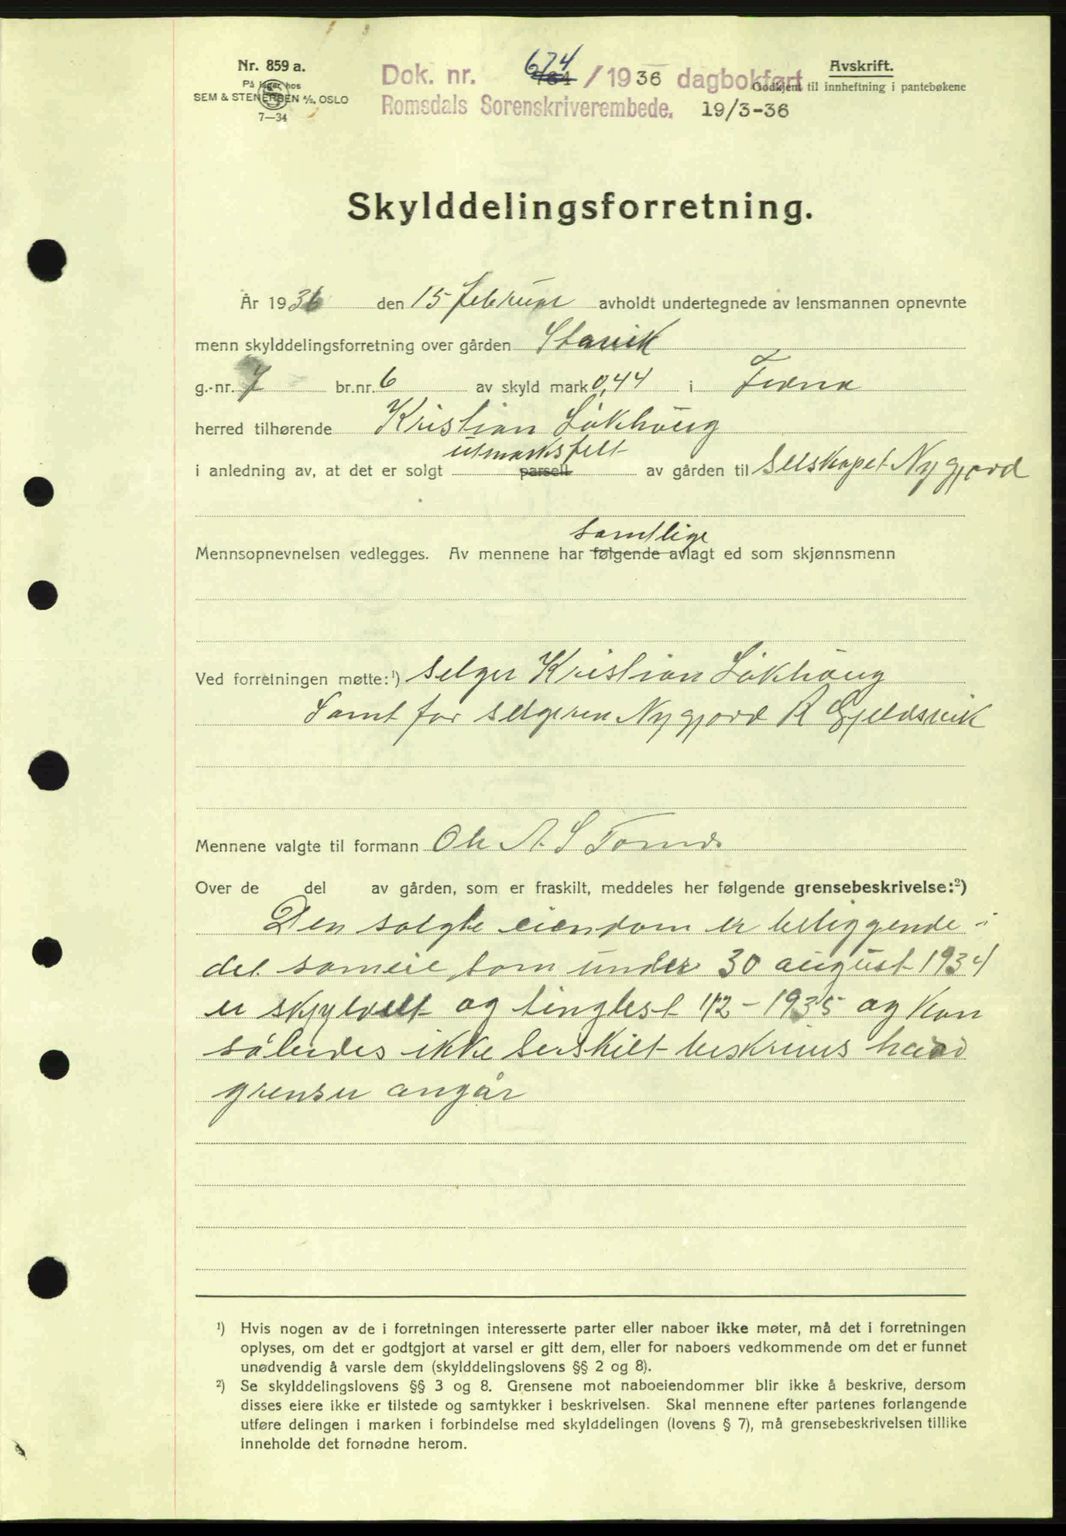 Nr. 859 a.
På lager hos
SEM & STENERSEN A/S, OSLO
7—34
Dok. nr. 674 / 1936 dagbokført
Romsdals Sorenskriverembede. 19/3-36
Avskrift.
Godkjent til innheftning i pantebøkene
Skylddelingsforretning.
År 1936 den 15 februar avholdt undertegnede av lensmannen opnevnte
menn skylddelingsforretning over gården Stavik
g.-nr. 7 br.nr. 6 av skyld mark 0,44 i Fræna
herred tilhørende Kristian Løkhaug
utmarksfelt
i anledning av, at det er solgt parsell av gården til Selskapet Nygjord
samtlige
Mennsopnevnelsen vedlegges. Av mennene har følgende avlagt ed som skjønnsmenn
Ved forretningen møtte:¹) Selger Kristian Løkhaug
Samt for selgeren Nygjord R Gjeldsvik
Mennene valgte til formann Ole A. S.
Over de del av gården, som er fraskilt, meddeles her følgende grensebeskrivelse:²)
Den solgte eiendom er beliggende i
det sameie som under 30 august 1934
er skyldelt og tinglest 1/2-1935 og kan
således ikke serskilt beskrives hvad
grenser angår
¹) Hvis nogen av de i forretningen interesserte parter eller naboer ikke møter, må det i forretningen
oplyses, om det er godtgjort at varsel er gitt dem, eller for naboers vedkommende om det er funnet
unødvendig å varsle dem (skylddelingslovens §§ 2 og 8).
²) Se skylddelingslovens §§ 3 og 8. Grensene mot naboeiendommer blir ikke å beskrive, dersom
disses eiere ikke er tilstede og samtykker i beskrivelsen. Skal mennene efter partenes forlangende
utføre delingen i marken i forbindelse med skylddelingen (lovens § 7), må grensebeskrivelsen tillike
inneholde det fornødne herom.